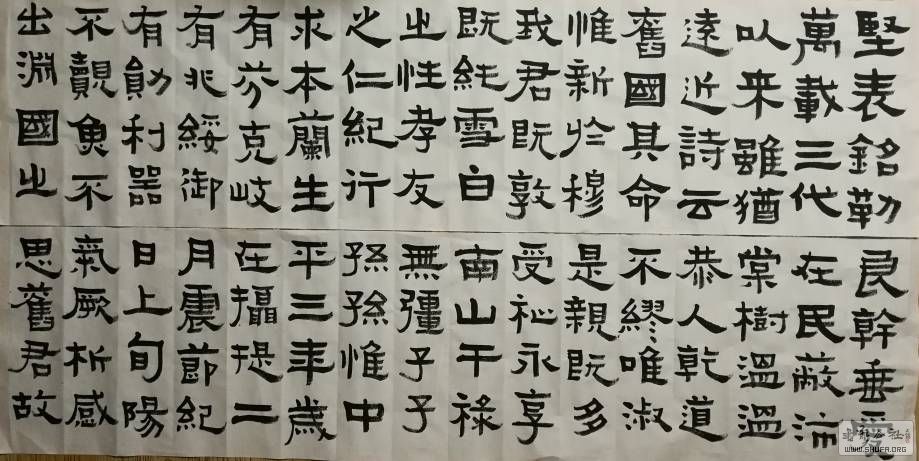 堅表銘勒
萬載三代
以来雖猶
遠近詩云
舊國其命
惟新於穆
我君既敦
既純雪白
之性孝友
之仁紀行
求本蘭生
有芬克岐
有兆綏御
有勛利器
不覿魚不
出淵國之
良幹垂愛
在民蔽沛
棠樹溫溫
恭人乾道
不繆唯淑
是親既多
受祉永享
南山干祿
無彊子子
孫孫惟中
平三年歲
在攝提二
月震節紀
日上旬陽
氣厥析感
思舊君故
WWW.SHUFA.ORG